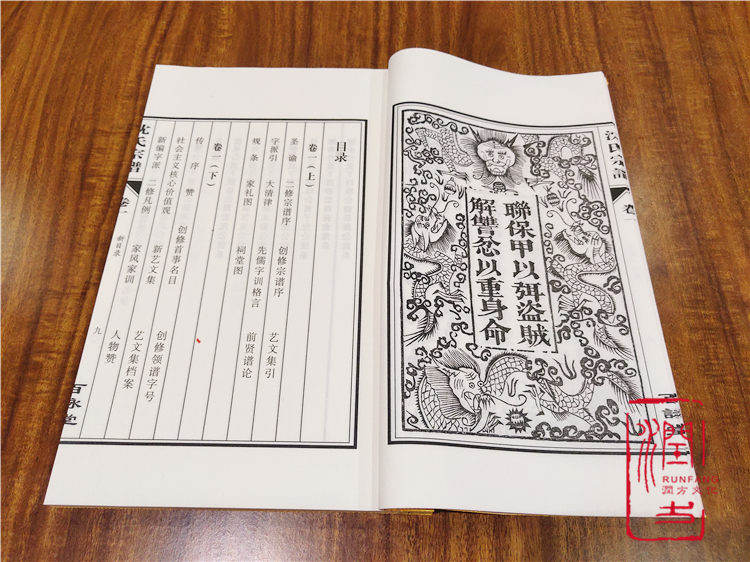 沈氏宗譜
聯保甲以弭盜賊
解讐忿以重身命
目录
卷一(上)
圣谕 二修宗谱序 创修宗谱序 艺文集引
字派引 大清律 先儒字训格言 前贤谱论
规条 家礼图 祠堂图
卷一(下)
传序赞 创修首事名目 创修领谱字号
社会主义核心价值观 新艺文集 艺文集档案
新编字派 二修凡例 家风家训 人物赞
沈氏宗譜 卷一 新目录 九
潤方
RUNFANG
潤方文化